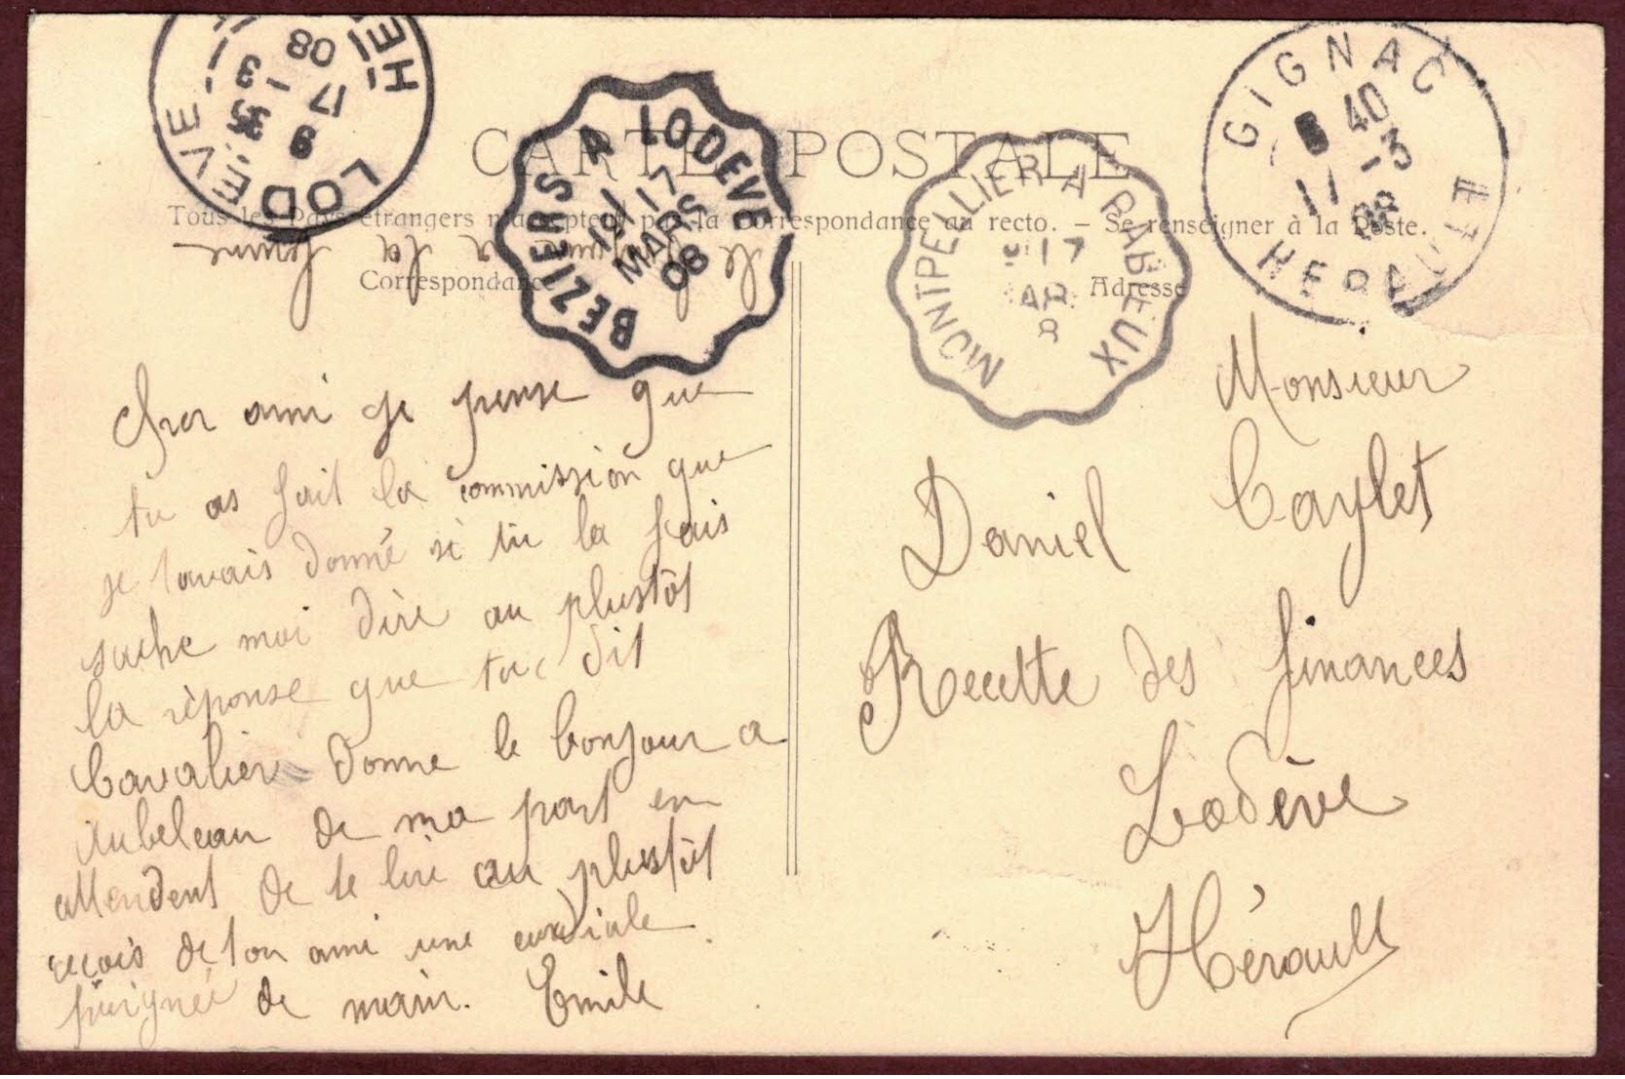 CARTE POSTALE
Tous les Pays étrangers n'acceptent pas la correspondance au recto. – Se renseigner à la Poste.
Correspondance
Adresse
LODÈVE HÉ
9 35
17 - 3
08
BEZIERS A LODEVE
191
17
MARS
08
MONTPELLIER A RABIEUX
17
AR
8
GIGNAC
40
-3
08
HERAULT
Cher ami je pense que
tu as fait la commission que
je tavais donné si tu la fais
sache moi dire au plustôt
la réponse que ta dit
Cavalier donne le bonjour a
Aubeleau de ma part en
attendent de te lire au plustôt
recois de ton ami une cordiale
poignée de main. Emile
Monsieur
Daniel Caylet
Recette des finances
Lodève
Hérault